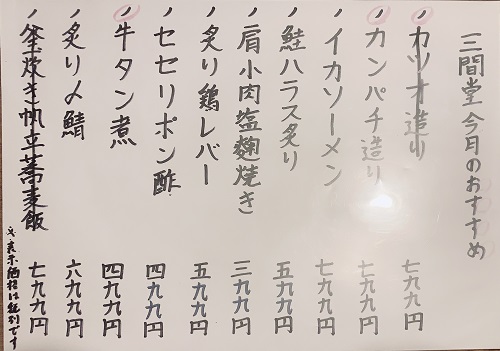 三間堂 今月のおすすめ
ノカツオ造り 七九九円
ノカンパチ造り 七九九円
ノイカソーメン 七九九円
ノ鮭ハラス炙り 五九九円
ノ肩小肉塩麹焼き 三九九円
ノ炙り鶏レバー 五九九円
ノセセリポン酢 四九九円
ノ牛タン煮 四九九円
ノ炙り〆鯖 六九九円
ノ釜炊き帆立蕎麦飯 七九九円
※表示価格は税別です